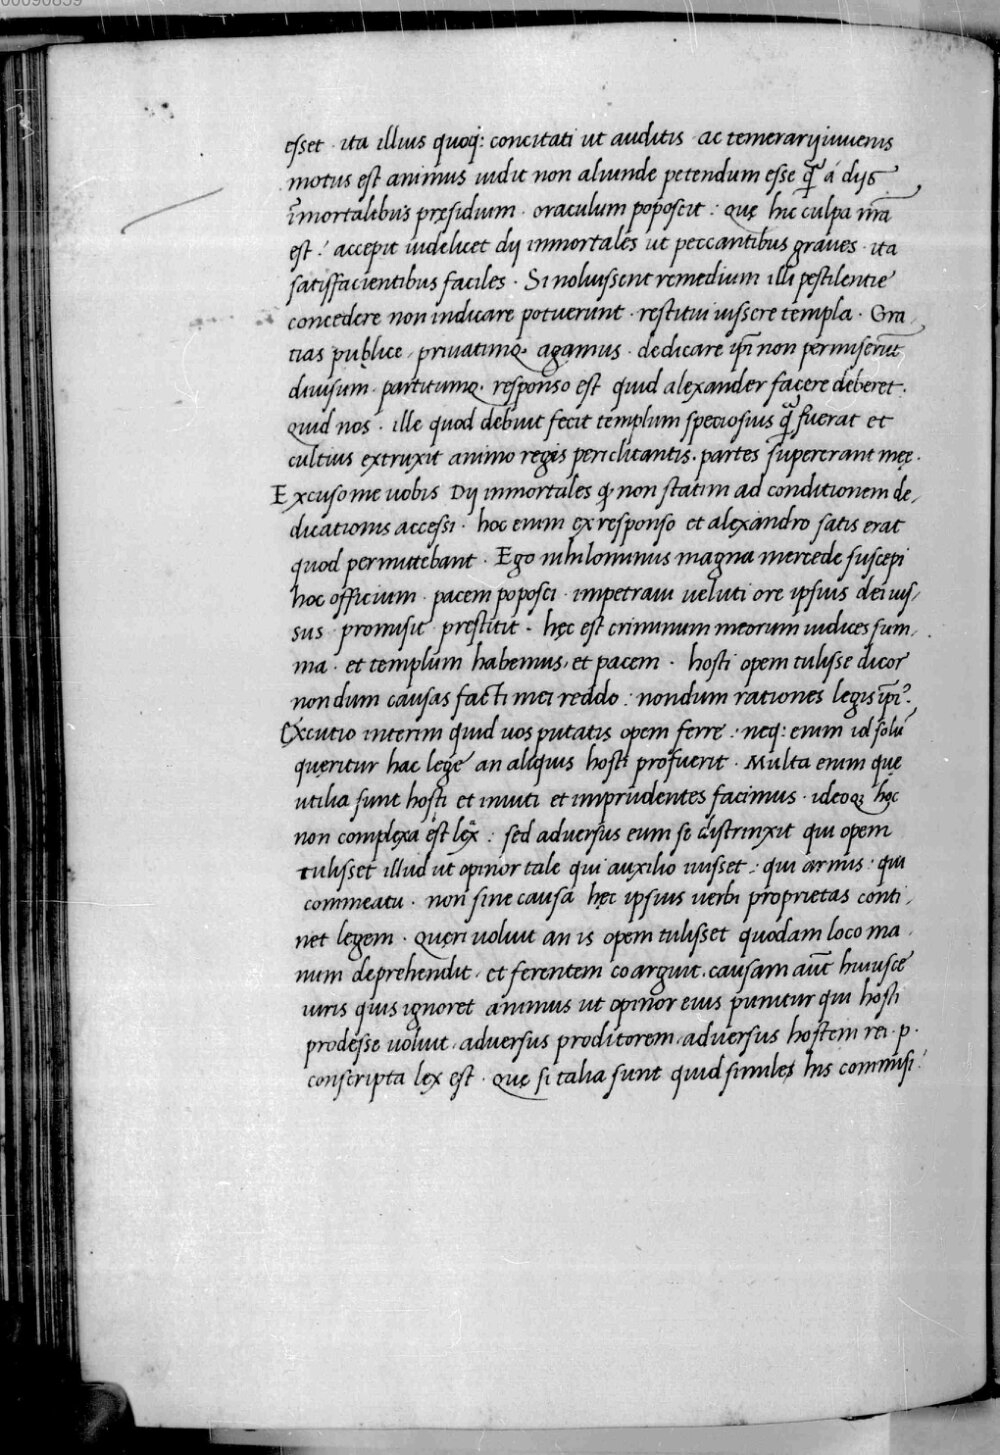 00090859
esset · ita illius quoq: concitati ut auditis · ac temerarij iuuenis
motus est animus uidit non aliunde petendum esse q̃ á dijs
ĩmortalibus pręsidium · oraculum poposcit : quę hic culpa nr̃a
est ? accepit uidelicet dij inmortales ut peccantibus graues · ita
satisfacientibus faciles · Si noluissent remedium illi pestilentie
concedere non indicare potuerunt · restitui iussere templa · Gra,
tias publice, priuatimq; agamus · dedicare ip̃i non permiserũt
diuisum · partitumq; responso est quid alexander facere deberet ·
quid nos · ille quod debuit fecit templum speciosius q̃ fuerat et
cultius extruxit animo regis periclitantis · partes supererant meę ·
Excuso me uobis Dij inmortales q; non statim ad conditionem de,
dicationis accessi · hoc enim ex responso et alexandro satis erat
quod permittebant · Ego nihilominus magna mercede suscepi
hoc officium · pacem poposci · impetraui ueluti ore ipsius dei ius,
sus promisit prestitit · hęc est criminum meorum iudices sum,
ma · et templum habemus, et pacem · hosti opem tulisse dicor
nondum causas facti mei reddo : nondum rationes legis ip̃i?
Excutio interim quid uos putatis opem ferre : neq: enim id solũ
quęritur hac lege an aliquis hosti profuerit · Multa enim quę
utilia sunt hosti et inuiti et imprudentes facimus · ideoq; hęc
non complexa est lex : sed aduersus eum se distrinxit qui opem
tulisset illud ut opinor tale qui auxilio iuisset : qui armis : qui
commeatu · non sine causa hęc ipsius uerbi proprietas conti,
net legem · quęri uoluit an is opem tulisset quodam loco ma,
num deprehendit, et ferentem coarguit, causam aũt huiusce
iuris quis ignoret animus ut opinor eius punitur qui hosti
prodesse uoluit, aduersus proditorem, aduersus hostem rei · p ·
conscripta lex est · quę si talia sunt quid similes his commisi?